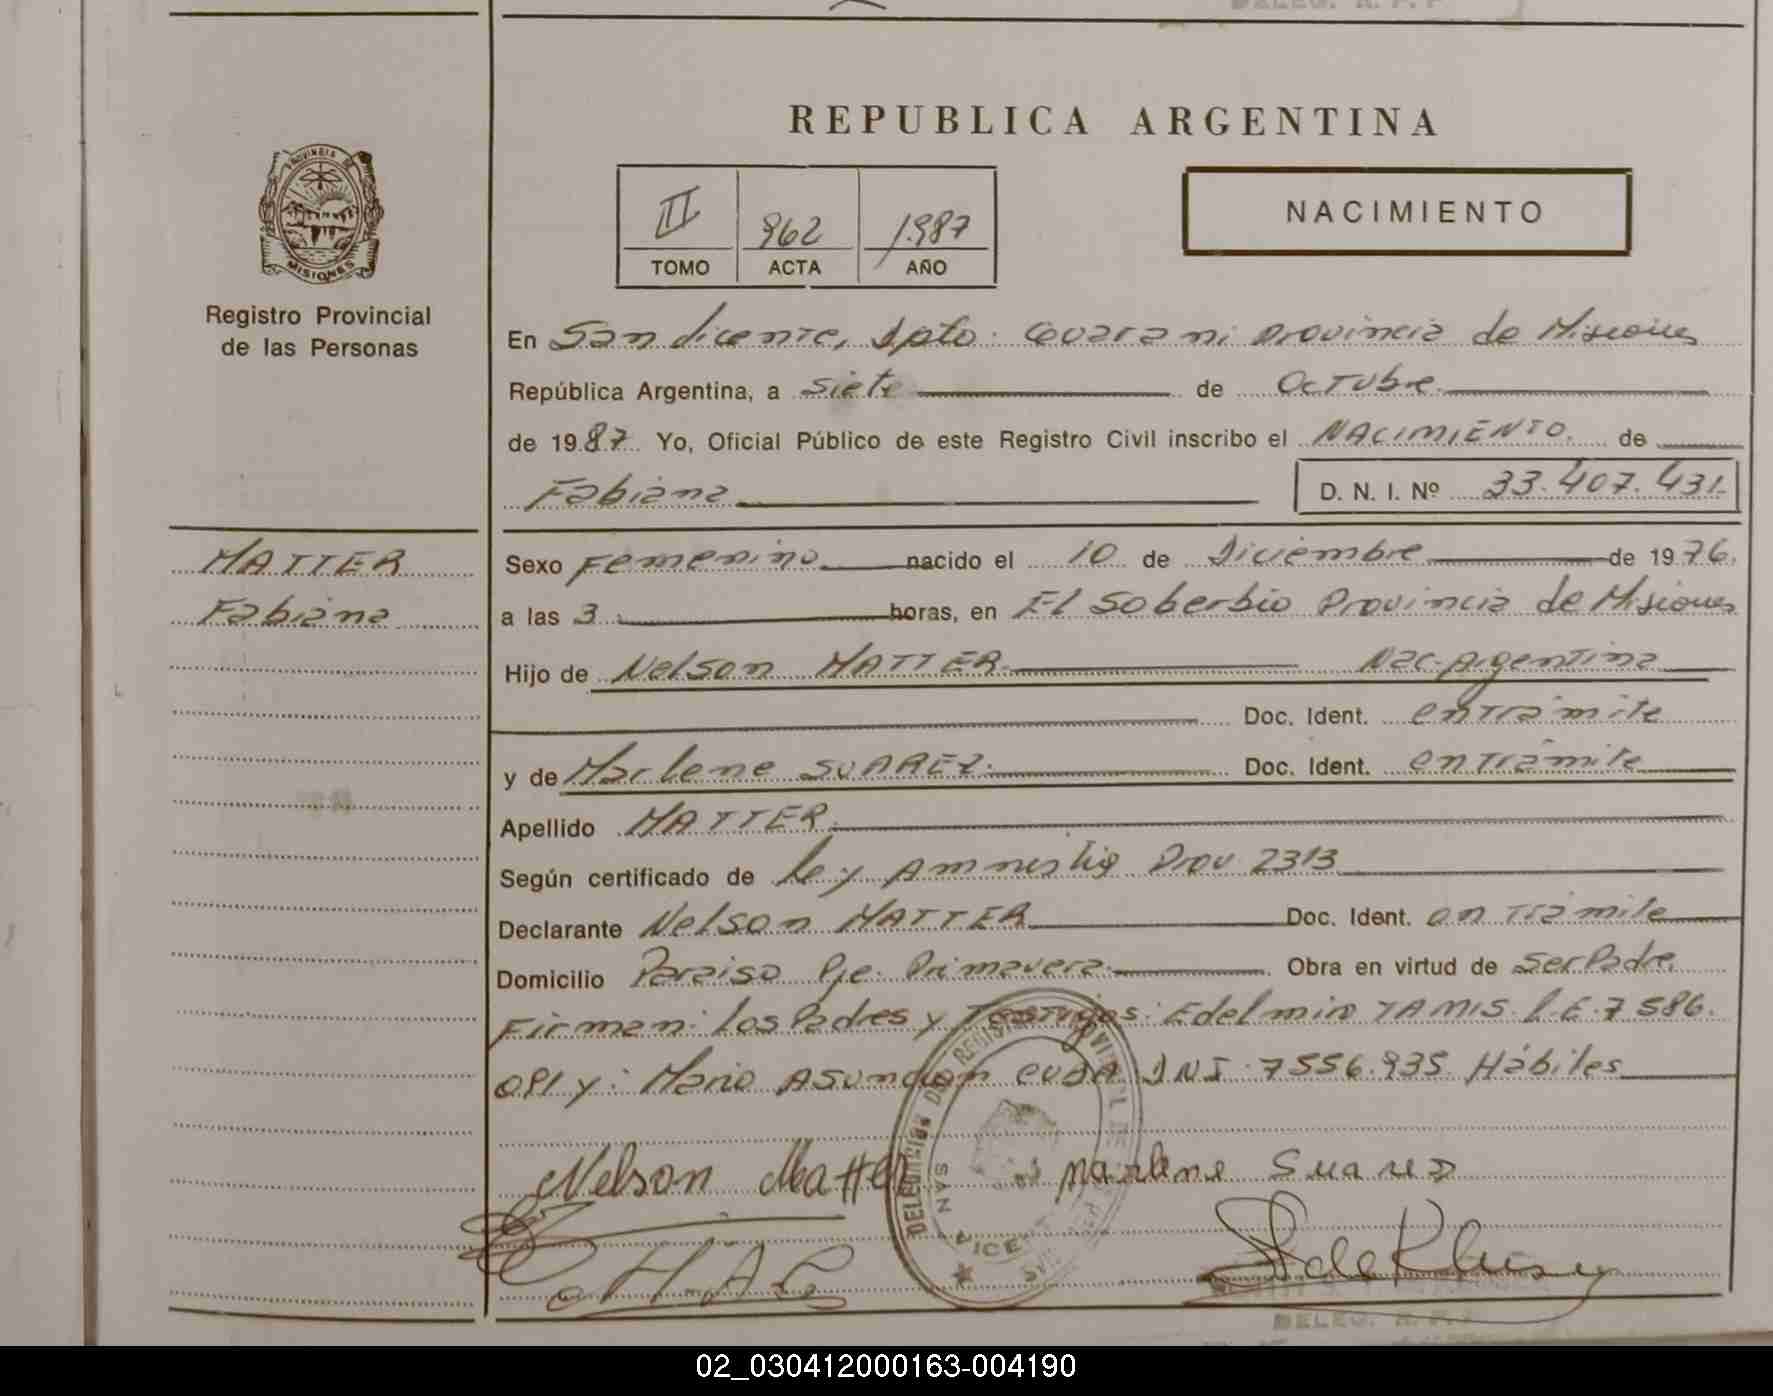 DELEG. R. P. P
REPUBLICA ARGENTINA
PROVINCIA DE
MISIONES
Registro Provincial
de las Personas
II 962 1987
TOMO ACTA AÑO
NACIMIENTO
En San Vicente, Dpto: Guarani Provincia de Misiones
República Argentina, a siete de Octubre
de 1987. Yo, Oficial Público de este Registro Civil inscribo el NACIMIENTO. de
Fabiana D. N. I. Nº 33.407.431.
MATTER
Fabiana
Sexo Femenino nacido el 10 de Diciembre de 1976.
a las 3 horas, en El Soberbio Provincia de Misiones
Hijo de Nelson MATTER. Nac-Argentina
Doc. Ident. en trámite
y de Marlene SUAREZ. Doc. Ident. en trámite
Apellido MATTER.
Según certificado de Ley Amnistia Prov 2313
Declarante Nelson MATTER Doc. Ident. en trámite
Domicilio Paraiso Pje. Primavera. Obra en virtud de Ser Padre.
Firman: Los Padres y Testigos: Edelmiro TAMIS. L.E. 7586.
091 y: Mario Asuncion DNI. 7556.935. Hábiles
Nelson Matter Marlene Suarez
DELEG. R. P. P
02_030412000163-004190